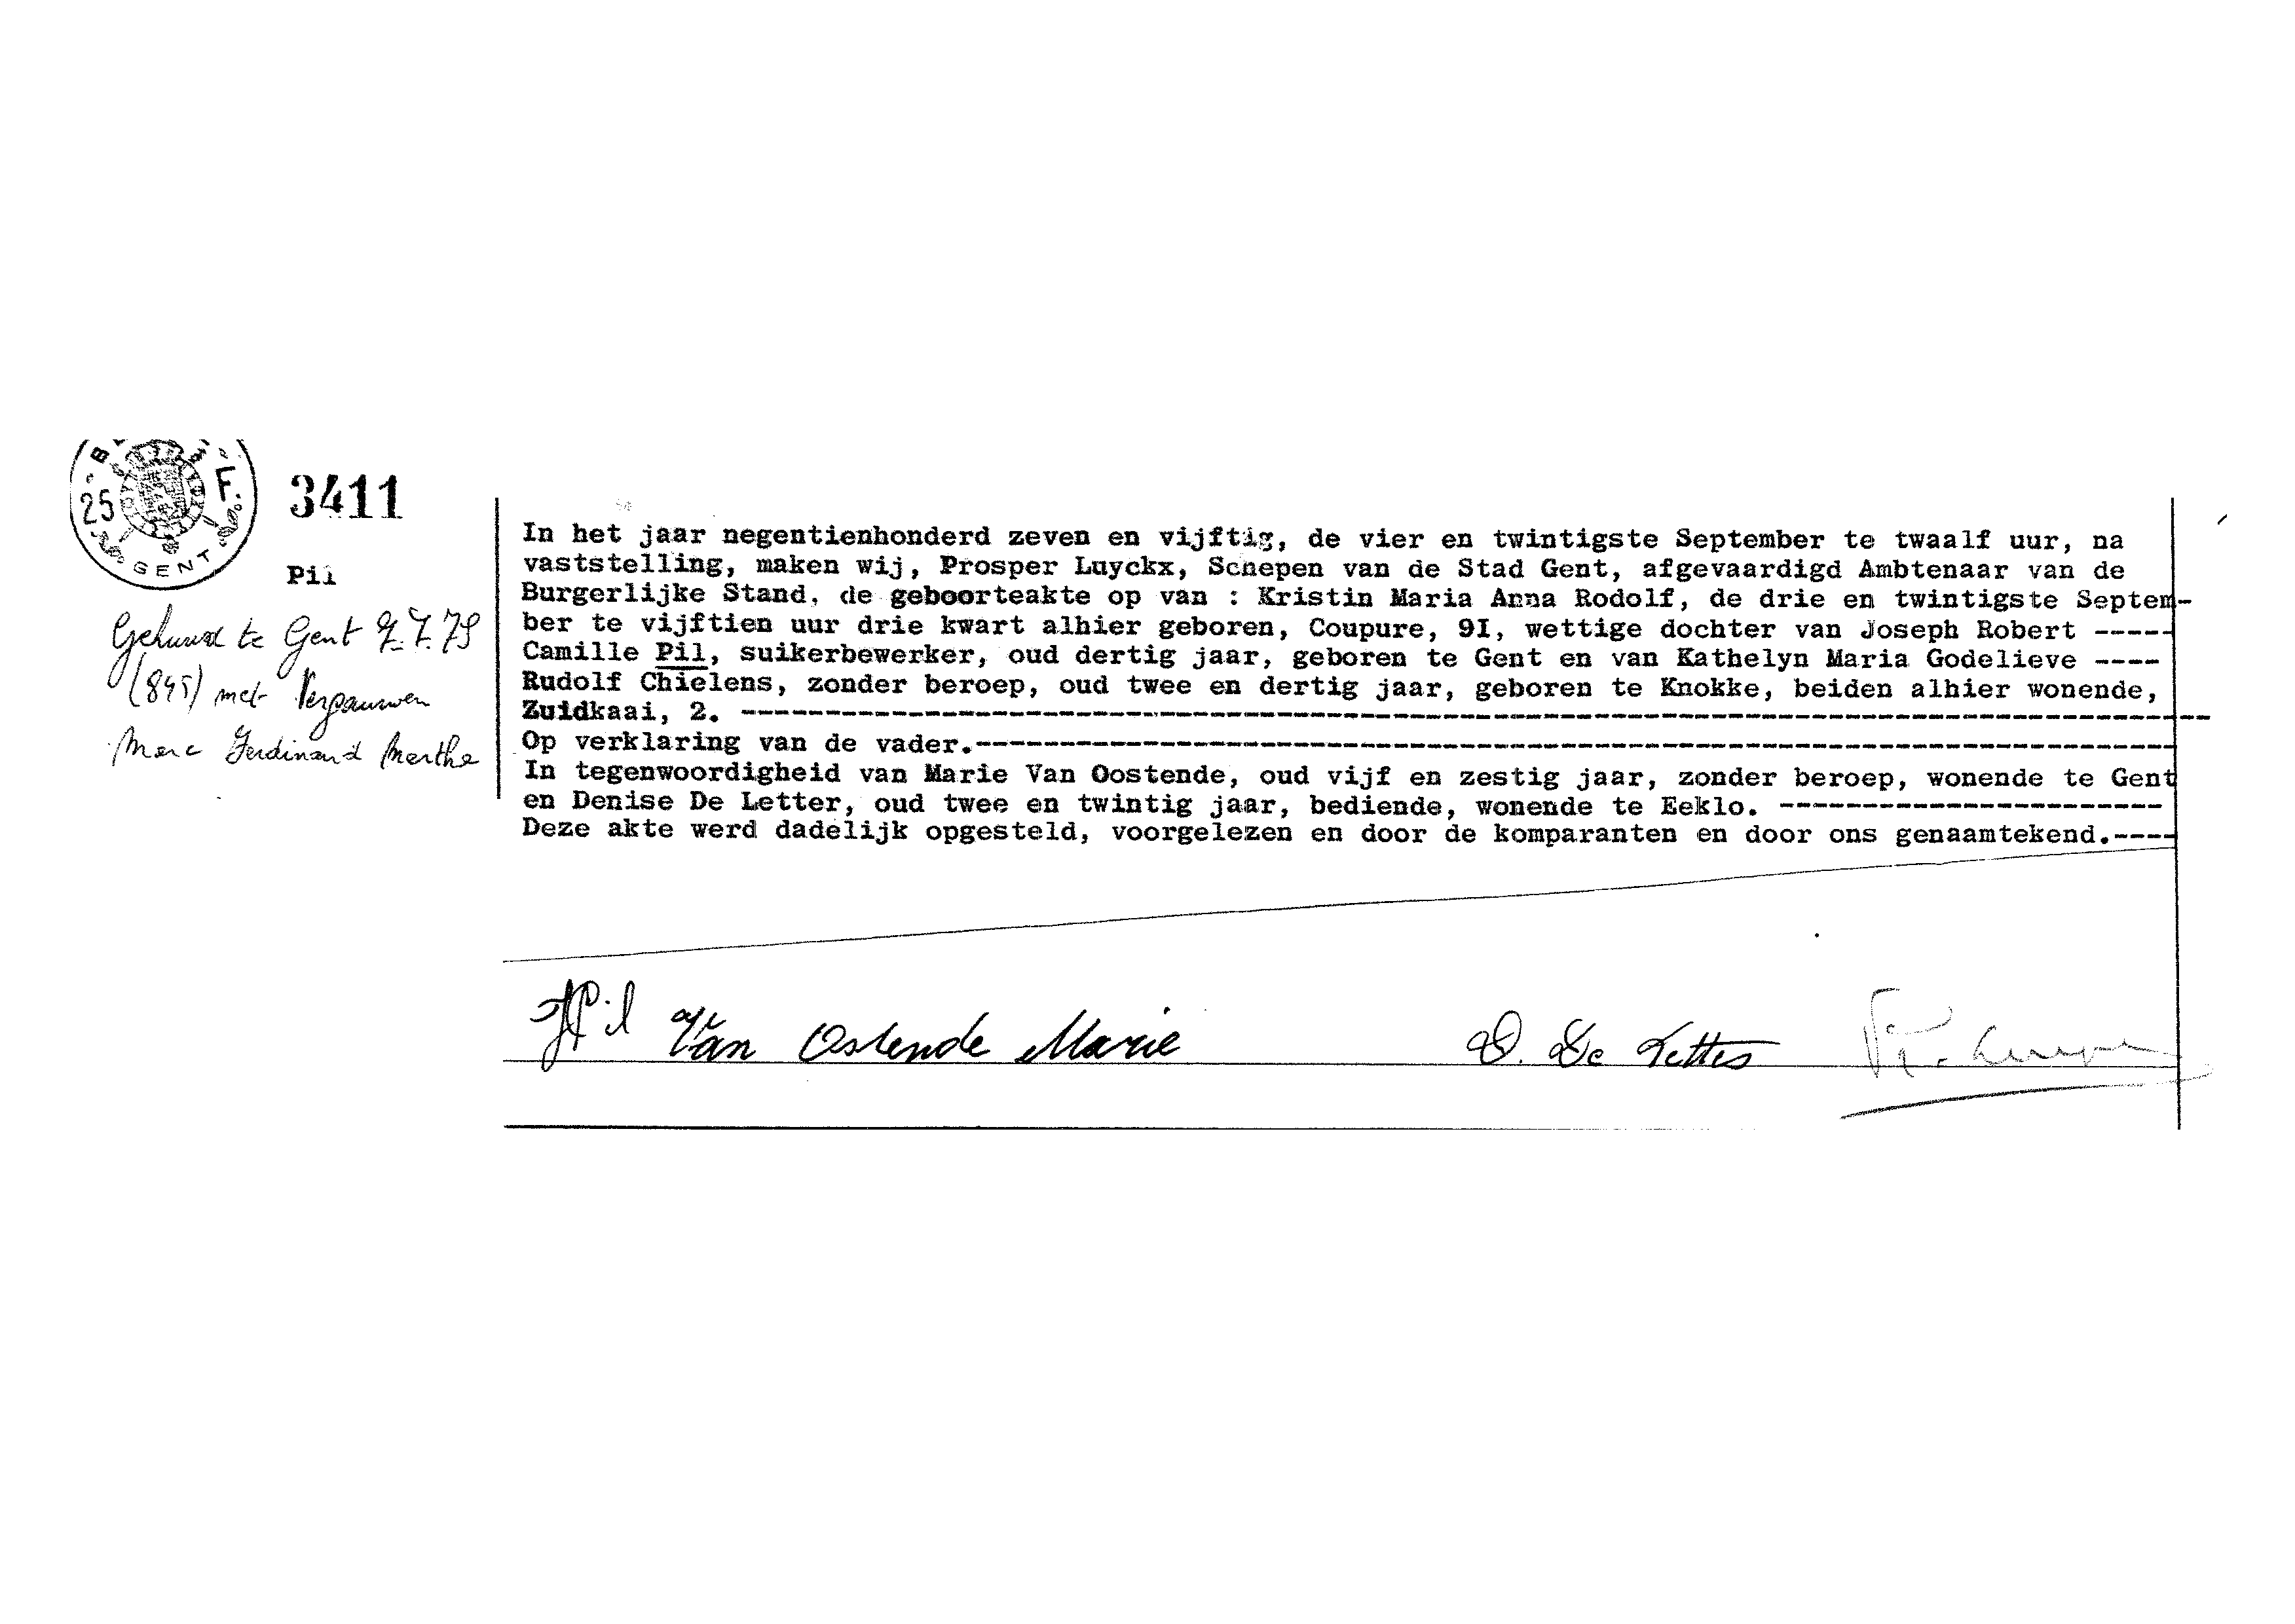 25 F.
GENT
3411
Pil
Gehuwd te Gent 7.7.79
(845) met Vergauwen
Marc Ferdinand Marthe
In het jaar negentienhonderd zeven en vijftig, de vier en twintigste September te twaalf uur, na
vaststelling, maken wij, Prosper Luyckx, Schepen van de Stad Gent, afgevaardigd Ambtenaar van de
Burgerlijke Stand, de geboorteakte op van : Kristin Maria Anna Rodolf, de drie en twintigste Septem-
ber te vijftien uur drie kwart alhier geboren, Coupure, 9I, wettige dochter van Joseph Robert -----
Camille Pil, suikerbewerker, oud dertig jaar, geboren te Gent en van Kathelyn Maria Godelieve ----
Rudolf Chielens, zonder beroep, oud twee en dertig jaar, geboren te Knokke, beiden alhier wonende,
Zuidkaai, 2. ----------------------------------------------------------------------------------------
Op verklaring van de vader.------------------------------------------------------------------------
In tegenwoordigheid van Marie Van Oostende, oud vijf en zestig jaar, zonder beroep, wonende te Gent
en Denise De Letter, oud twee en twintig jaar, bediende, wonende te Eeklo. -----------------------
Deze akte werd dadelijk opgesteld, voorgelezen en door de komparanten en door ons genaamtekend.----
Pil Van Ostende Marie D. De Letter